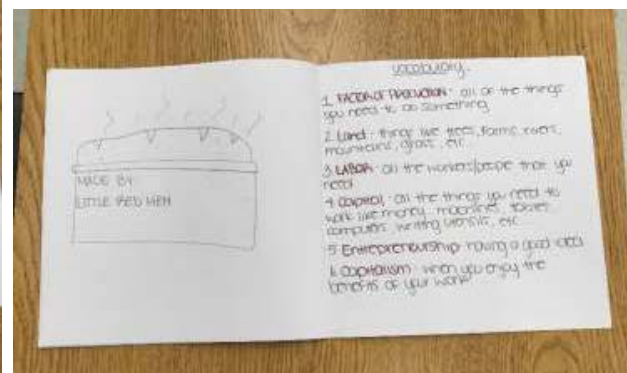 MADE BY
LITTLE RED HEN
Vocabulary
1. FACTOR OF PRODUCTION - all of the things
you need to do something
2. Land - things like trees, farms, rivers,
mountains, grass, etc.
3. LABOR - all the workers/people that you
need
4. Capital - all the things you need to
work like money, machines,
computers, writing utensils, etc.
5. Entrepreneurship - having a good idea
6. Capitalism - when you enjoy the
benefits of your work